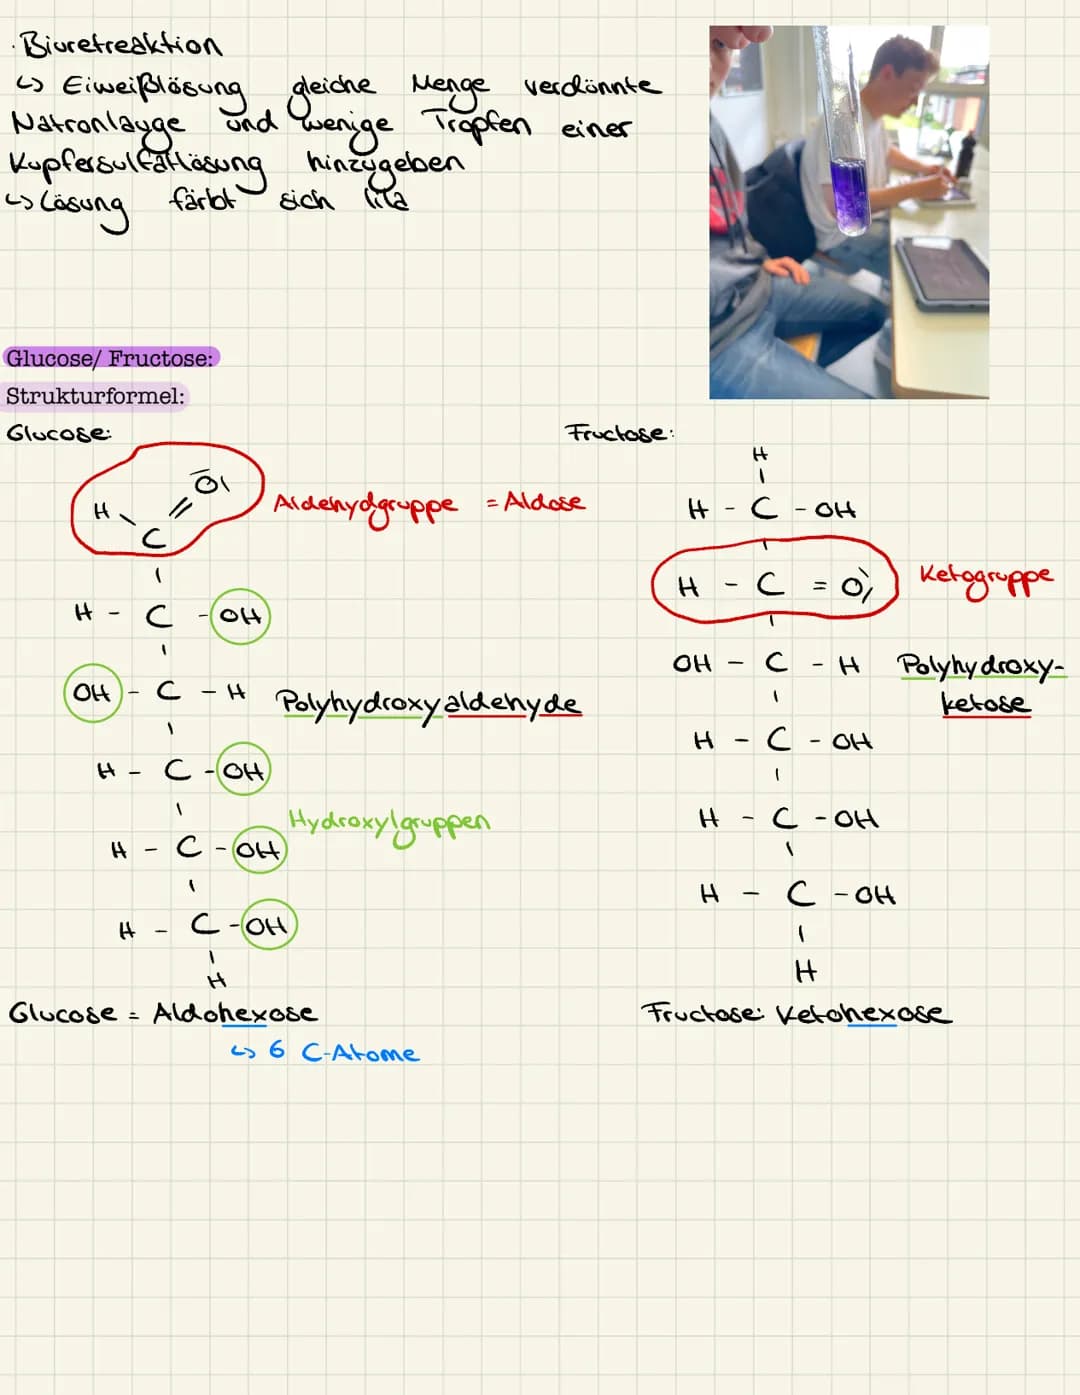 · Biuretreaktion
↳ Eiweißlösung gleiche Menge verdünnte
Natronlauge und wenige Tropfen einer
Kupfersulfatlösung hinzugeben
↳ Lösung färbt sich lila
Glucose/ Fructose:
Strukturformel:
Glucose:
H
O
C
Aldehydgruppe = Aldose
H - C - OH
OH - C - H
Polyhydroxyaldehyde
H - C - OH
Hydroxylgruppen
H - C - OH
H - C - OH
H
Glucose = Aldohexose
↳ 6 C-Atome
Fructose:
H
H - C - OH
H - C = O
Ketogruppe
OH - C - H
Polyhydroxy-
ketose
H - C - OH
H - C - OH
H - C - OH
H
Fructose: Ketohexose